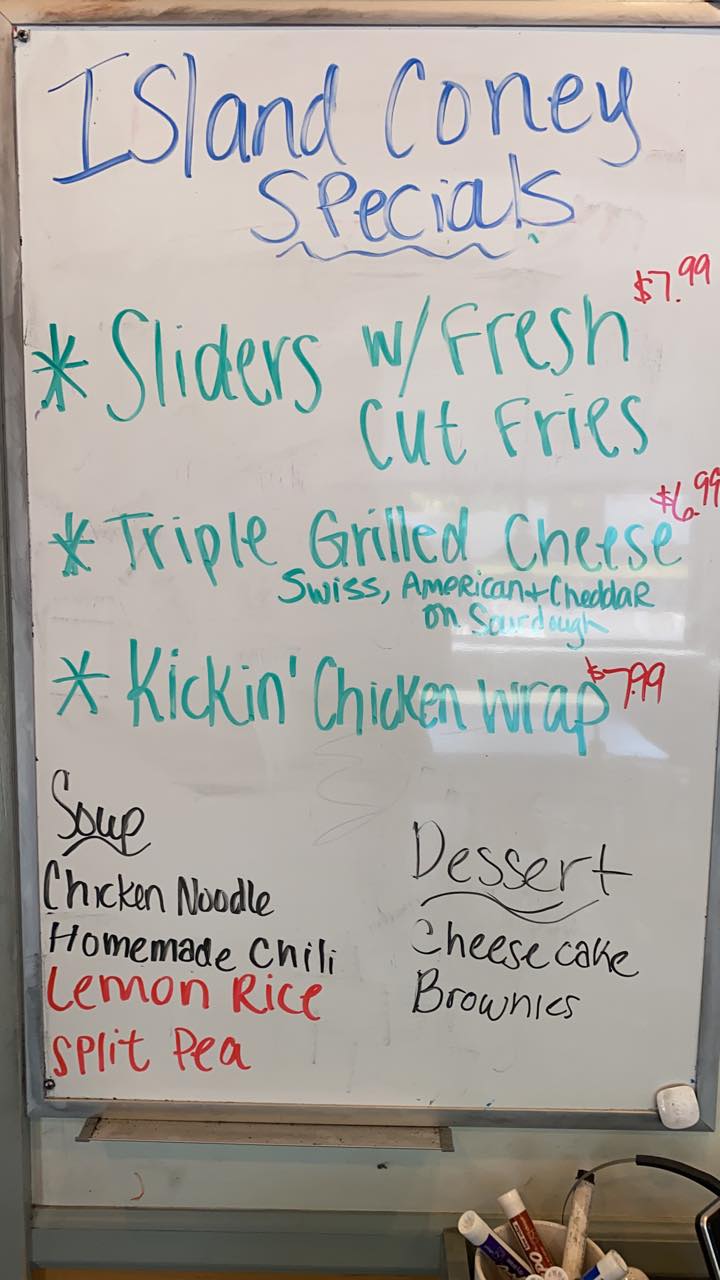 Island Coney
Specials
$7.99
* Sliders w/Fresh
Cut Fries
$6.99
* Triple Grilled Cheese
Swiss, American + Cheddar
on Sourdough
* Kickin' Chicken Wrap $7.99
Soup
Chicken Noodle
Homemade Chili
Lemon Rice
Split Pea
Dessert
Cheesecake
Brownies